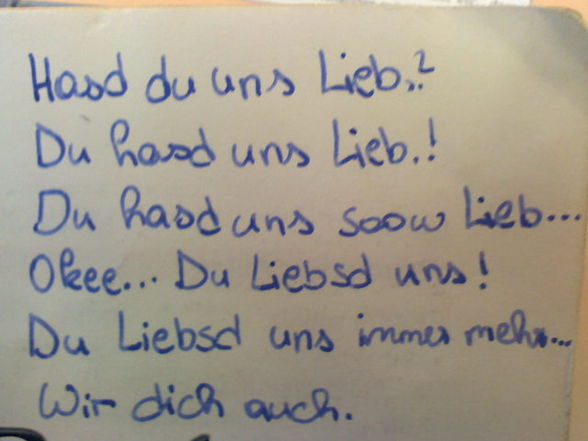 Hasd du uns Lieb..?
Du hasd uns Lieb.!
Du hasd uns soow Lieb...
Okee... Du Liebsd uns!
Du Liebsd uns immer mehr...
Wir dich auch.